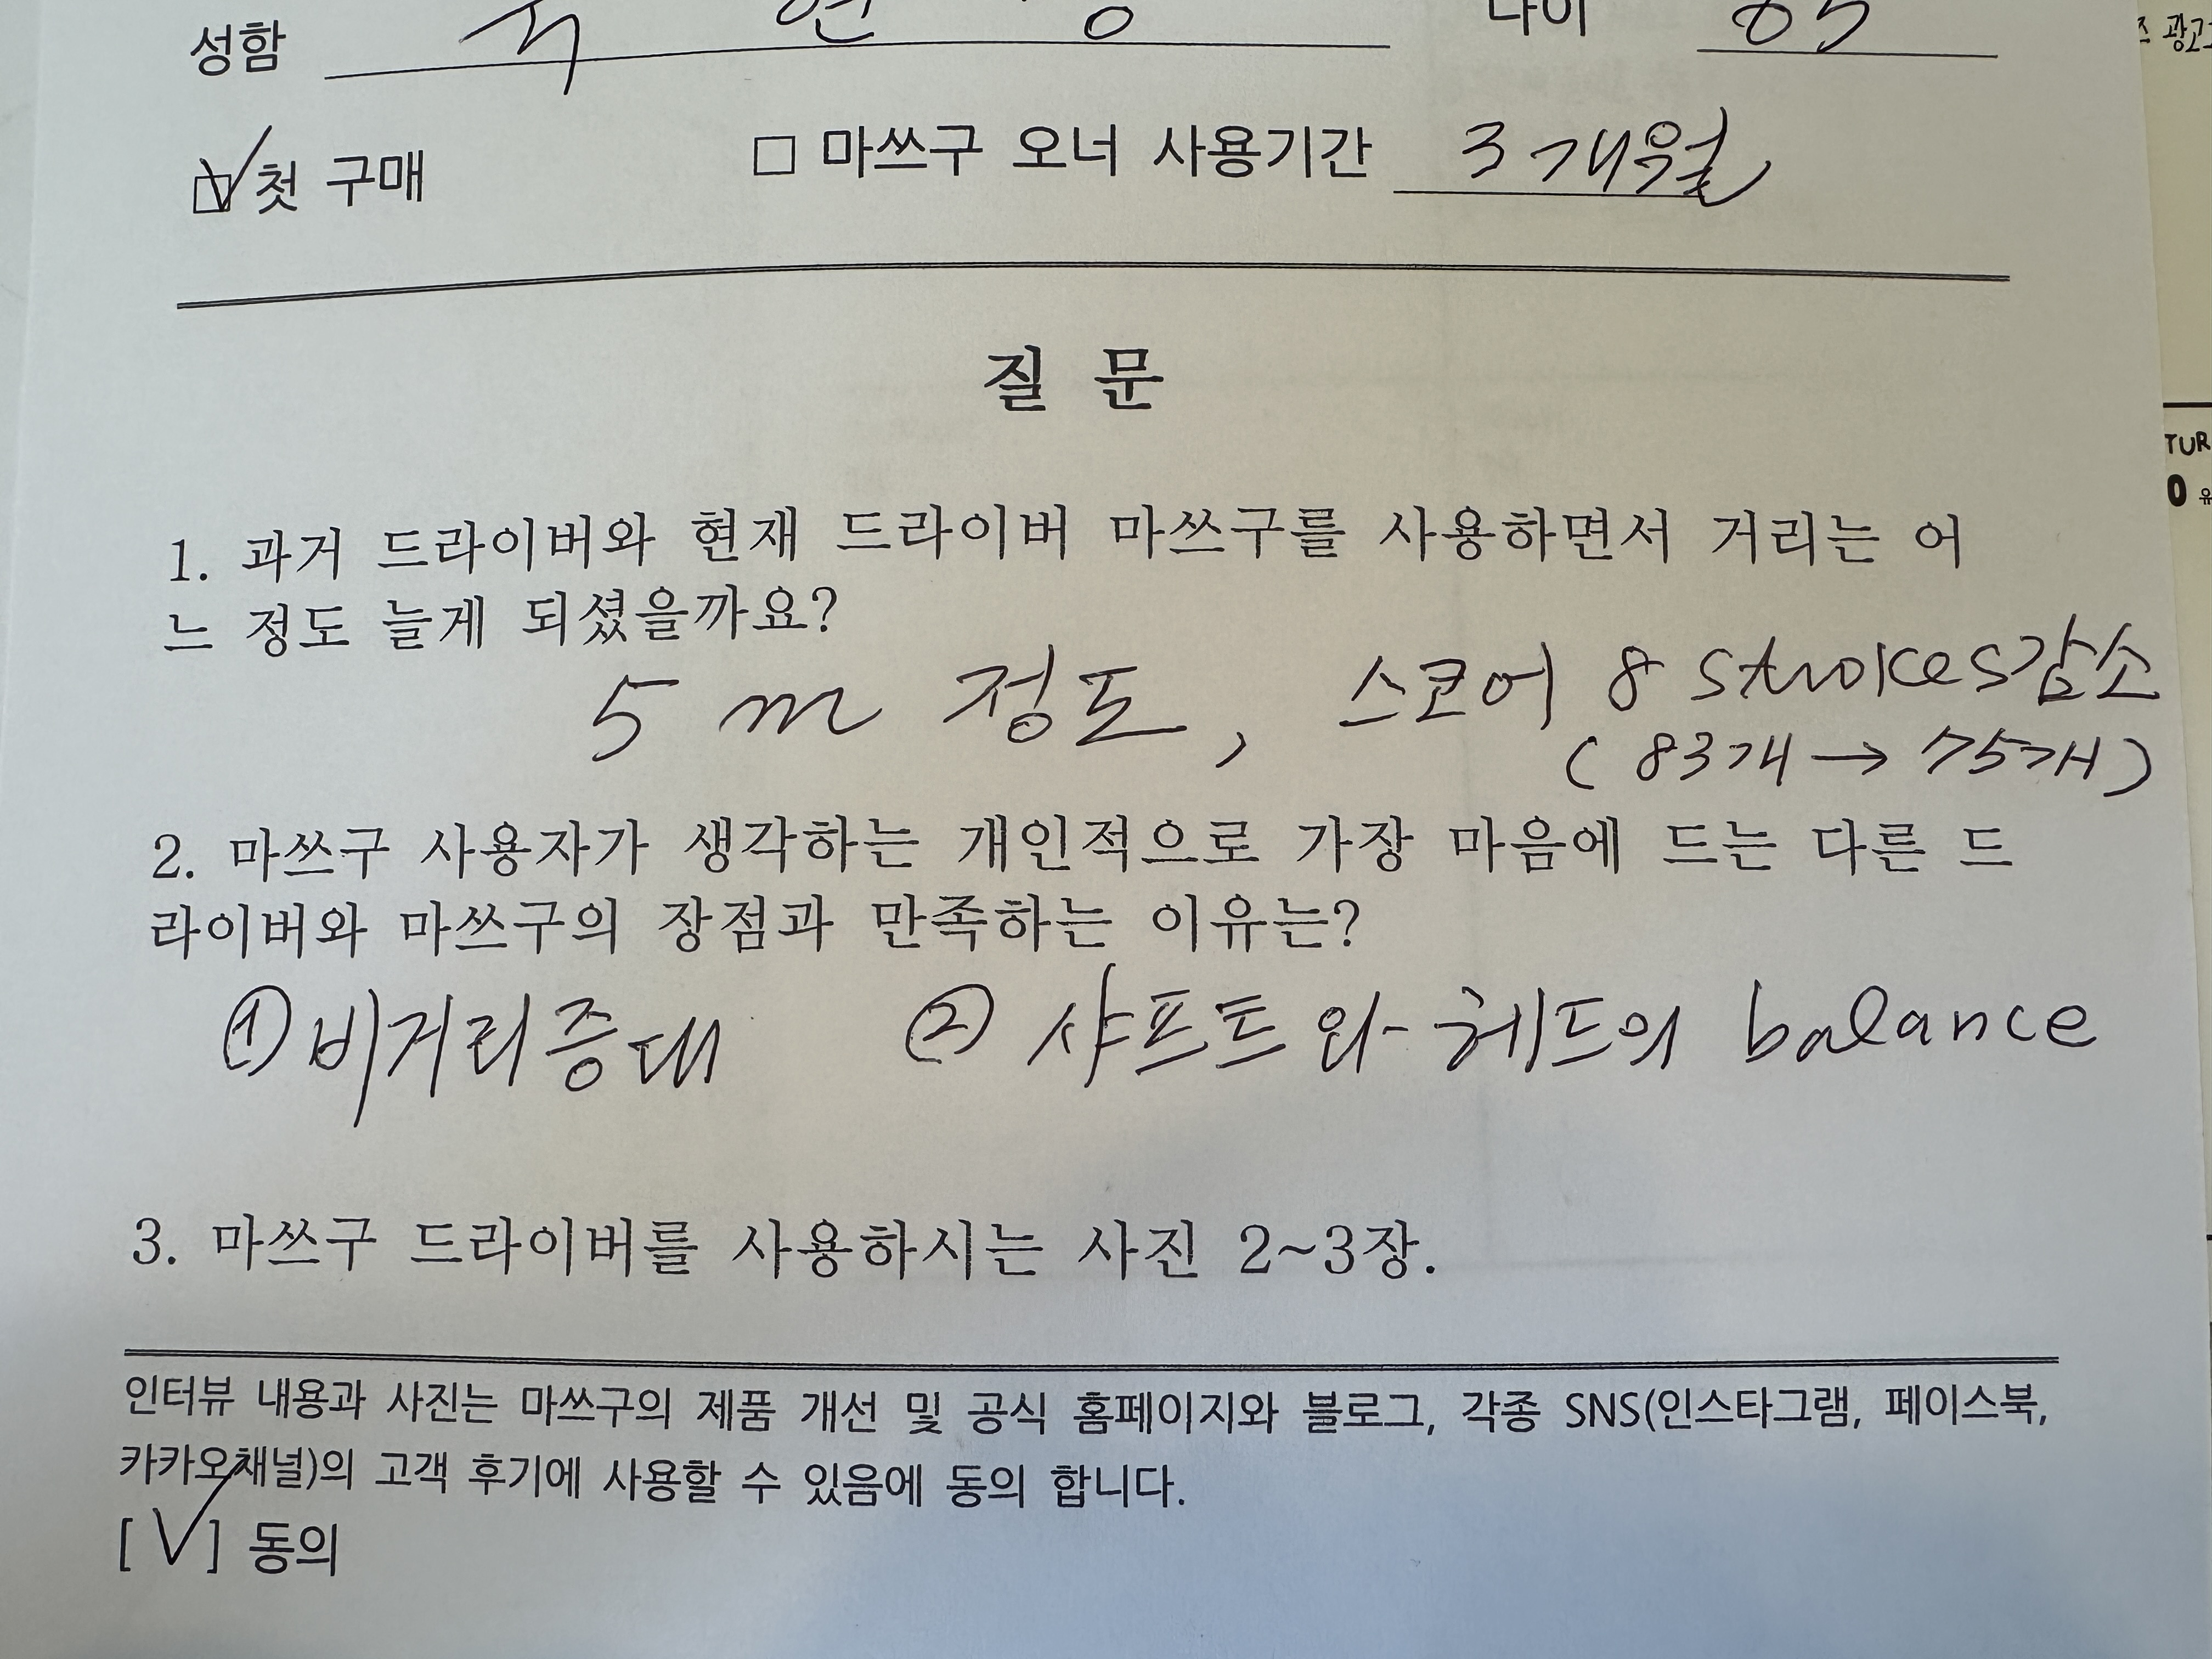 성함 나이
첫 구매 □ 마쓰구 오너 사용기간 3개월
질 문
1. 과거 드라이버와 현재 드라이버 마쓰구를 사용하면서 거리는 어
느 정도 늘게 되셨을까요?
5 m 정도, 스코어 8 strokes감소
(83개 → 75개)
2. 마쓰구 사용자가 생각하는 개인적으로 가장 마음에 드는 다른 드
라이버와 마쓰구의 장점과 만족하는 이유는?
① 비거리증대 ② 샤프트와 헤드의 balance
3. 마쓰구 드라이버를 사용하시는 사진 2~3장.
인터뷰 내용과 사진는 마쓰구의 제품 개선 및 공식 홈페이지와 블로그, 각종 SNS(인스타그램, 페이스북,
카카오채널)의 고객 후기에 사용할 수 있음에 동의 합니다.
[V] 동의
광고
TUR
0 유